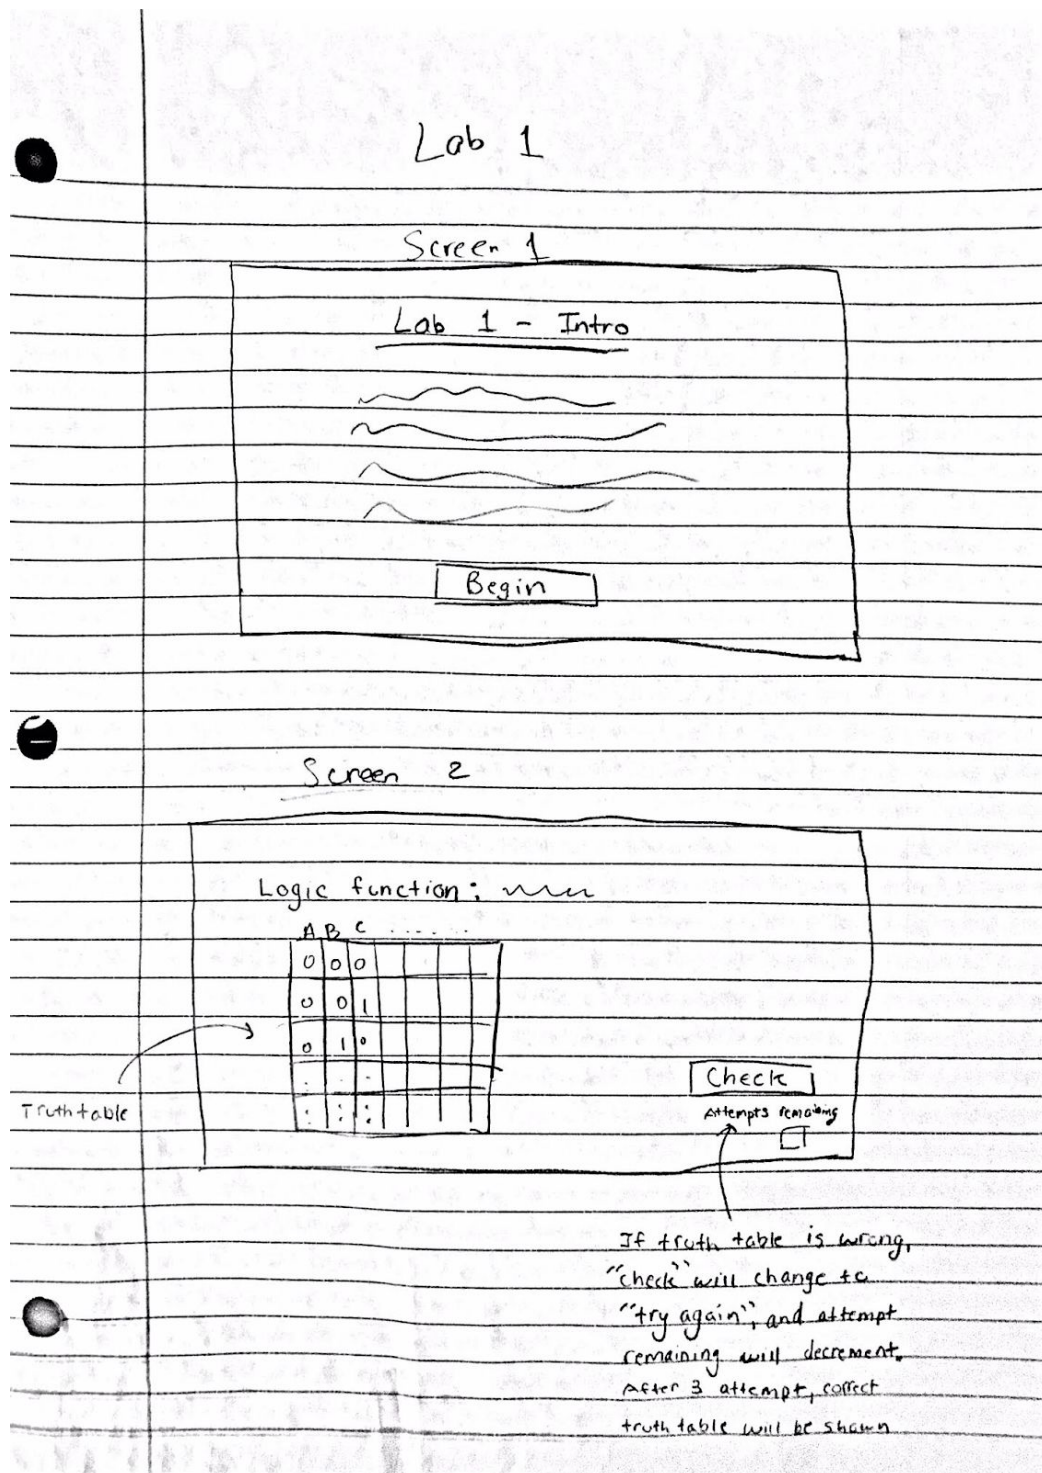 Lab 1
Screen 1
Lab 1 - Intro
Begin
Screen 2
Logic function:
A B C . . . . . .
0 0 0
0 0 1
0 1 0
. . .
: : :
Truth table
Check
Attempts remaining
If truth table is wrong,
"check" will change to
"try again", and attempt
remaining will decrement.
After 3 attempt, correct
truth table will be shown